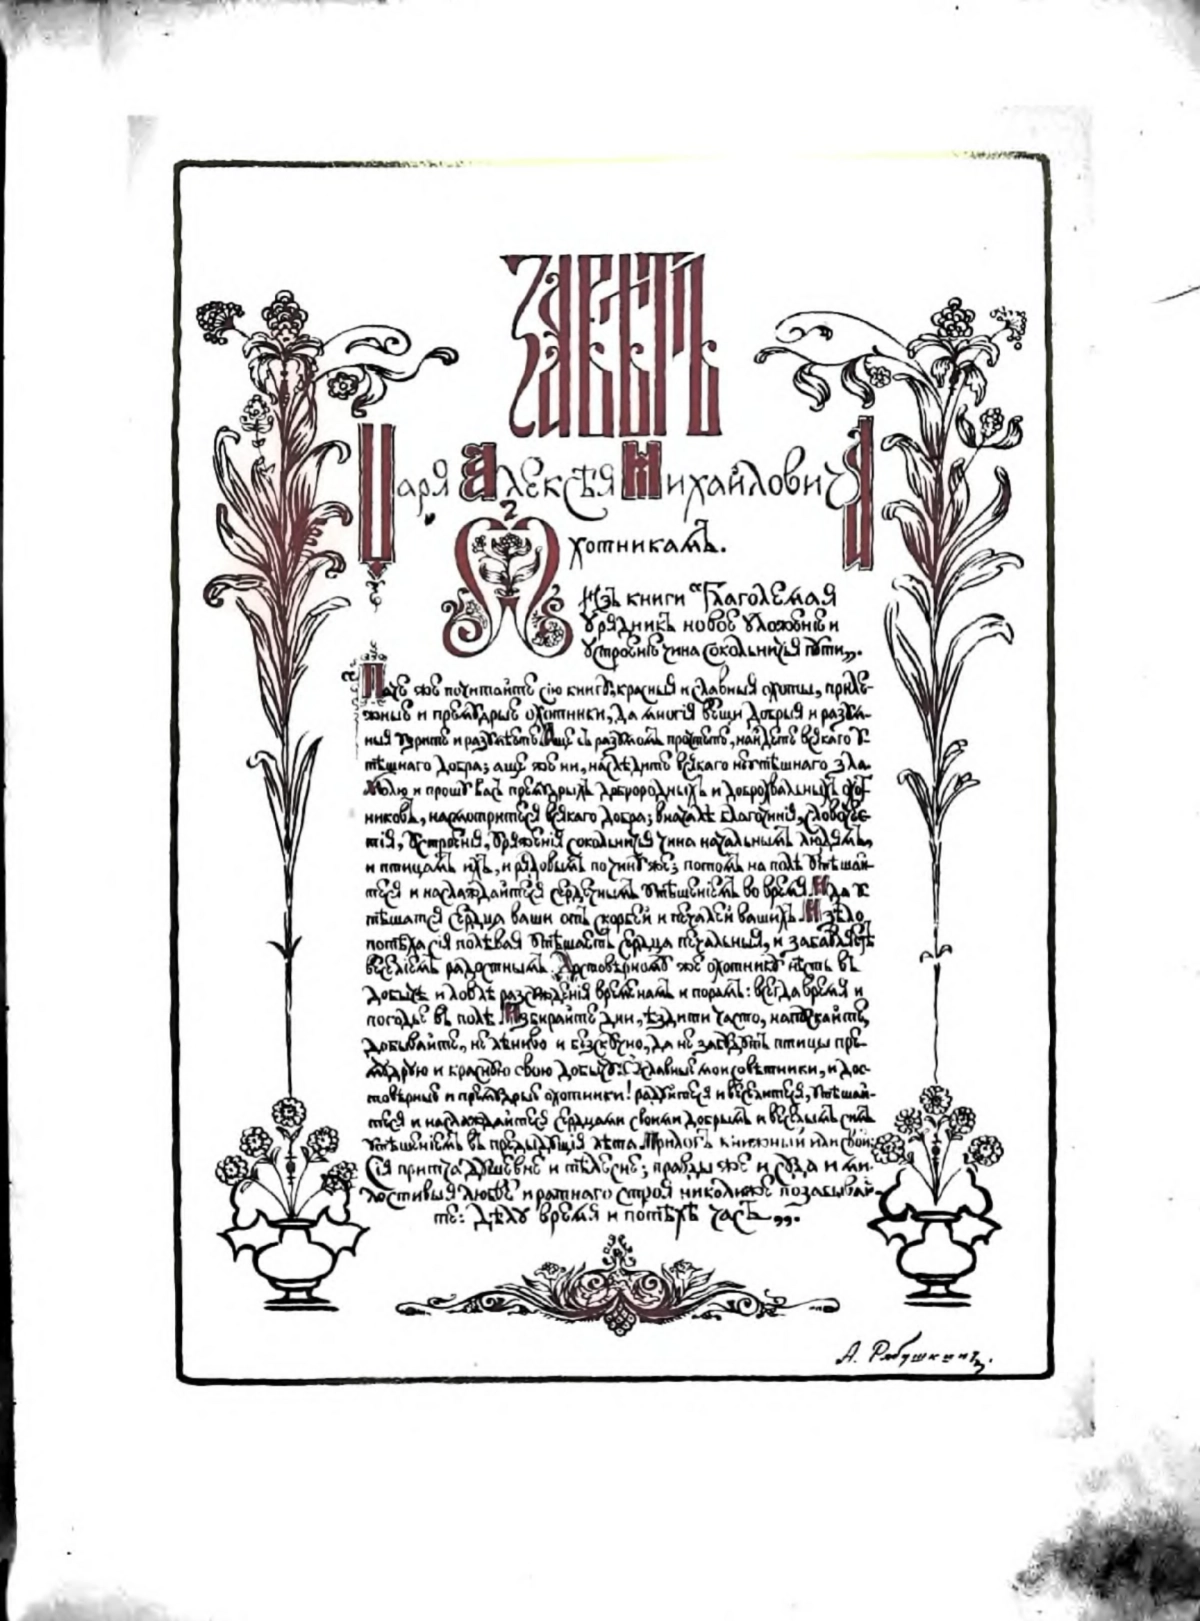 Завѣтъ
Царя Алексѣя Михайловича
Охотникамъ.
Изъ книги "Глаголемая
Урядникъ новое уложеніе и
устроеніе чина сокольничья пути".
"Паче же почитайте сію книгу, красныя и славныя охоты, приле-
жные и премудрые охотники, да многія вещи добрыя и разум-
ныя узрите и разумѣете. Аще съ разумомъ прочтете, найдете всякаго у-
тѣшнаго добра; аще же ни, наслѣдите всякаго неутѣшнаго зла.
Молю и прошу васъ премудрыхъ доброродныхъ и доброхвальныхъ охот-
никовъ, насмотритеся всякаго добра; вначалѣ благочинія, славочес-
тія, устроенія, уряженія сокольничья чина начальнымъ людямъ,
и птицамъ ихъ, и рядовымъ по чину же; потомъ на полѣ утѣшай-
теся и наслаждайтеся сердечнымъ утѣшеніемъ во время. И да у-
тѣшатся сердца ваши отъ скорбей и печалей вашихъ. И зѣло
потѣха сія полѣвая утѣшаетъ сердца печальныя, и забавляетъ
веселіемъ радостнымъ. Достовѣрному же охотнику нѣсть въ
добычѣ и ловлѣ разсужденія временамъ и порамъ: всегда время и
погодье въ полѣ. Избирайте дни, ѣздити часто, напускайте,
добывайте, не лѣниво и безскучно, да не забудутъ птицы пре-
мудрую и красную свою добычу. О славные мои совѣтники, и дос-
товѣрные и премудрые охотники! радуйтеся и веселитеся, утѣшай-
теся и наслаждайтеся сердцами своими добрымъ и веселымъ симъ
утѣшеніемъ въ предыдущія лѣта. Прилогъ книжный или свой:
Сія притча душевне и тѣлесне; правды же и суда и ми-
лостивыя любве и ратнаго строя николиже позабывай-
те: дѣлу время и потѣхѣ часъ".
А. Рябушкинъ.